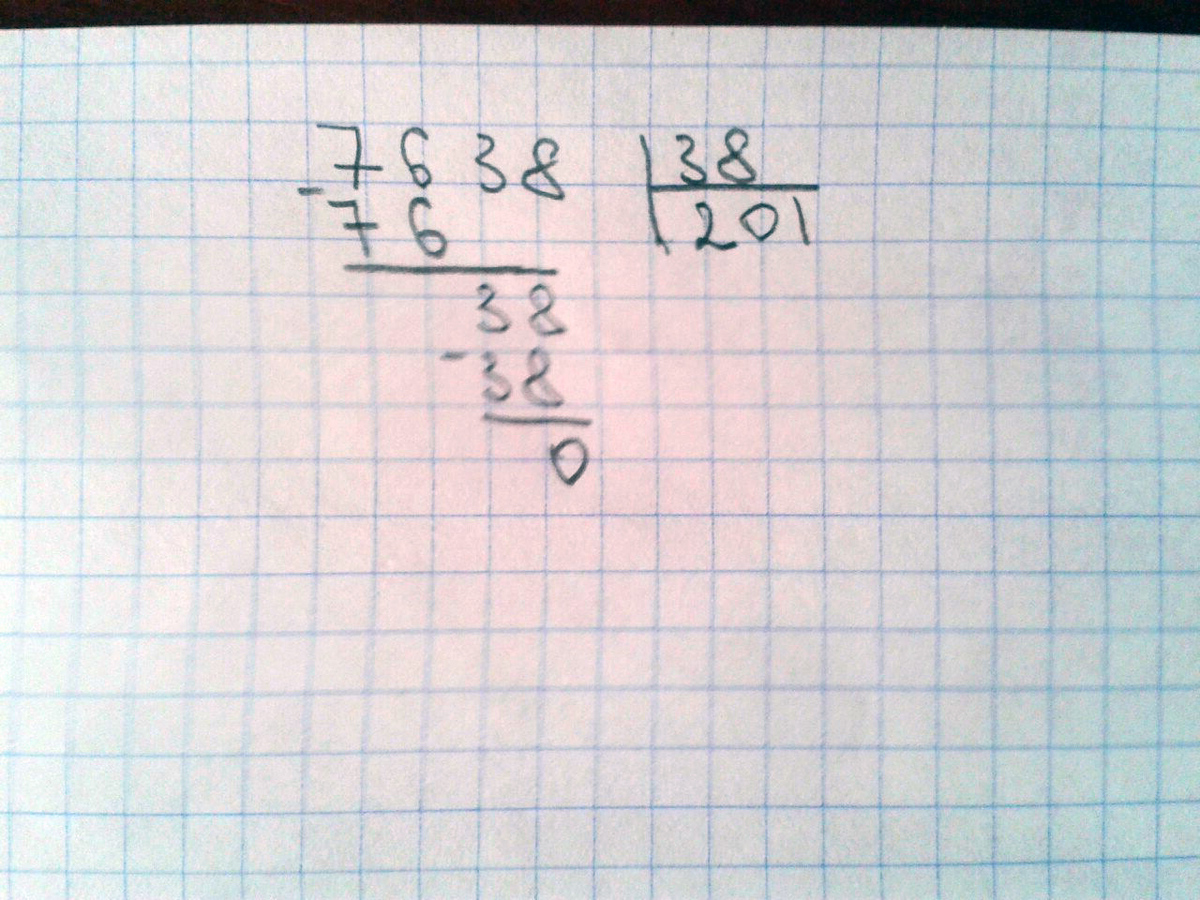 7638 38
- 76 201
38
- 38
0